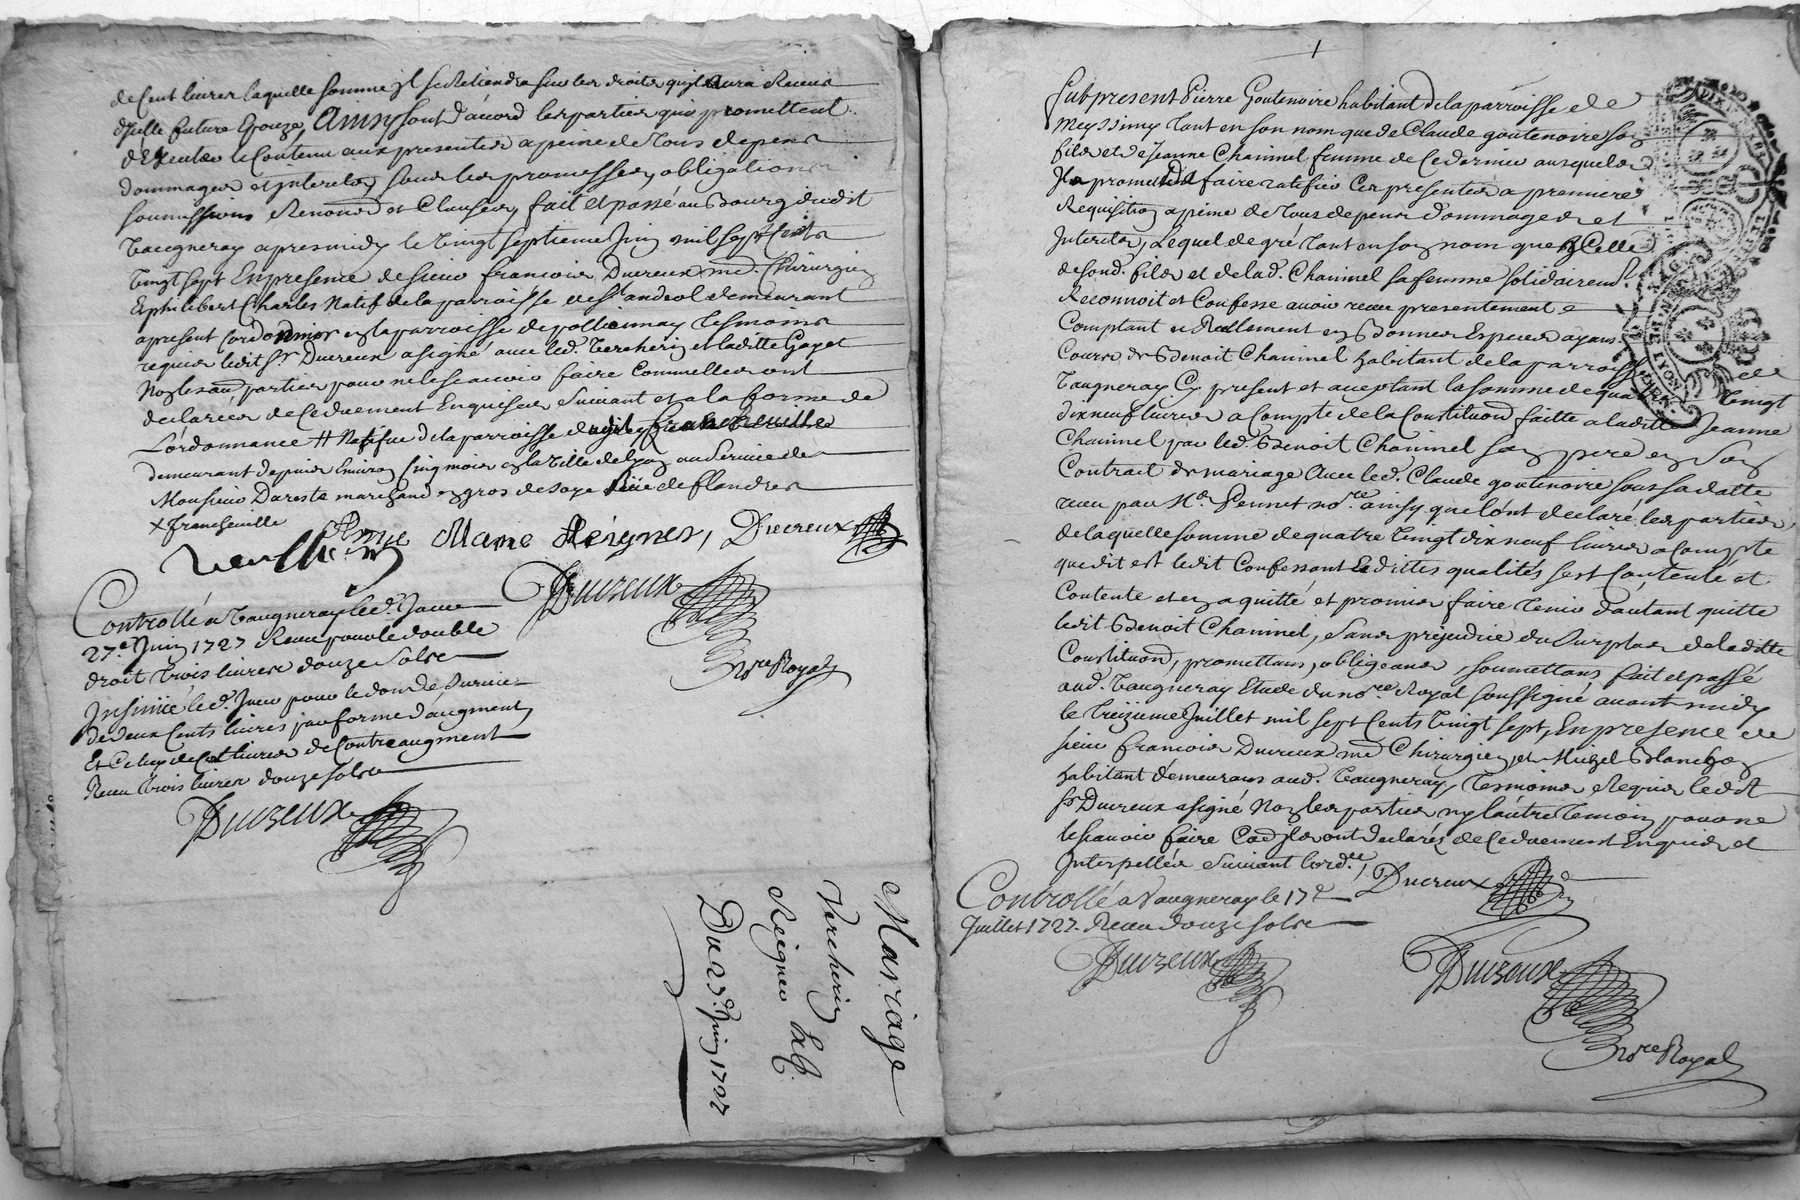 de Cent livres laquelle somme jl se Retiendra sur les droits quil aura Receus
djcelle future Epouze, Ainsy sont d'accord les parties qui promettent
dExecuter le Contenu aux presentes a peine de Tous depens
dommages et jnterets, sous les promesses, obligations
soumissions Renond. et Clauses, fait et passé au Bourg dudit
Vaugneray apres midy le Vingt septieme Juin mil sept Cents
Vingt sept En presence de sieur francois Ducreux md. Chirurgien
Et philibert Charles Natif de la parroisse de St andeol demeurant
a present Cordonnier en la parroisse de pollionnay Tesmoins
requis ledit Sr. Ducreux a signé avec led. Vercherin et laditte
Non les aud parties pour ne le scavoir faire Comme elles ont
declarées de Ce duement Enquises Suivant et a la forme de
Lordonnance # Natifue de la parroisse
demeurant depuis Environ Cinq mois en la Ville de Lyon au Service de
Monsieur Dareste marchand en gros de soye Rüe de flandres
x francheuille
Marie Reignes, Ducreux
Controllé a Vaugneray led. Jour
27.e Juin 1727 Receu pour le double
droit Trois livres douze sols
Insinué led. Jour pour le don de survie
de deux Cents livres par forme daugment
Et Celuy de Cent livres de Contreaugment
Receu Trois livres douze sols
Ducreux
nre Royal
Ducreux
Mariage
Vercherin
Reignes
Du 27.e Juin 1727
1
Fut present Pierre Goutenoire habitant de la parroisse de
Meyssimy tant en son nom que de Claude goutenoire son
fils et de Jeanne Chaninel femme de Ce dernier ausquels
Il promet de faire ratifier Ces presentes a premiere
Requisition a peine de Tous depens D'ommages et
Interets, Lequel de gré tant en son nom que Celle
desond. fils et de lad. Chaninel sa femme solidairemt.
Reconnoit et Confesse avoir receu presentement
Comptant et Reellement en Bonnes Especes ayans
Cours de Benoit Chaninel habitant de la parroisse de
Vaugneray Cy present et acceptant la somme de quatre Vingt
dix neuf livres a Compte de la Constitution faitte a laditte Jeanne
Chaninel par led. Benoit Chaninel son pere en son
Contrait de mariage Avec led. Claude goutenoire sous sa datte
receu par Me. Pennet nore. ainsy que l'ont declaré les parties
de laquelle somme de quatre Vingt dix neuf livres a Compte
que dit est ledit Confessant Esdittes qualités sest Contenté et
Contente et en a quitté et promis faire tenir d'autant quitte
ledit Benoit Chaninel, sans prejudice du surplus de laditte
Constitution, promettans, obligeans, soumettans, fait et passé
aud. Vaugneray Etude du nore Royal soussigné avant midy
le Treizieme Juillet mil sept Cents Vingt sept, En presence de
sieur francois Ducreux md Chirurgien, et Michel Blanchon
habitant demeurans aud. Vaugneray, Tesmoins Requis ledit
Sr Ducreux a signé Non les parties ny l'autre Temoin pour ne
le scavoir faire ont declarés de Ce duement Enquis et
Interpellés Suivant lorde.
Ducreux
Controllé a Vaugneray le 17e
Juillet 1727. Receu douze sols
Ducreux
Ducreux
nre Royal
LYON